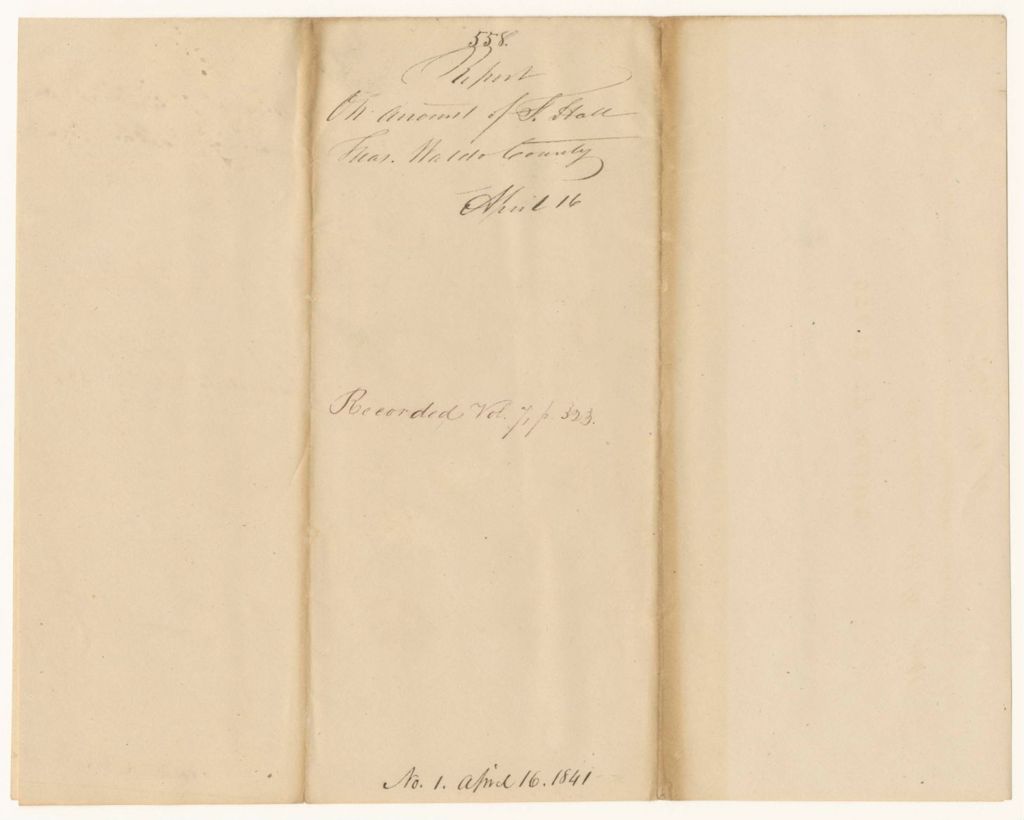 558.
Report
On Account of F. Hall
Treas. Waldo County
April 16
Recorded Vol. 7, p. 323.
No. 1. April 16. 1841